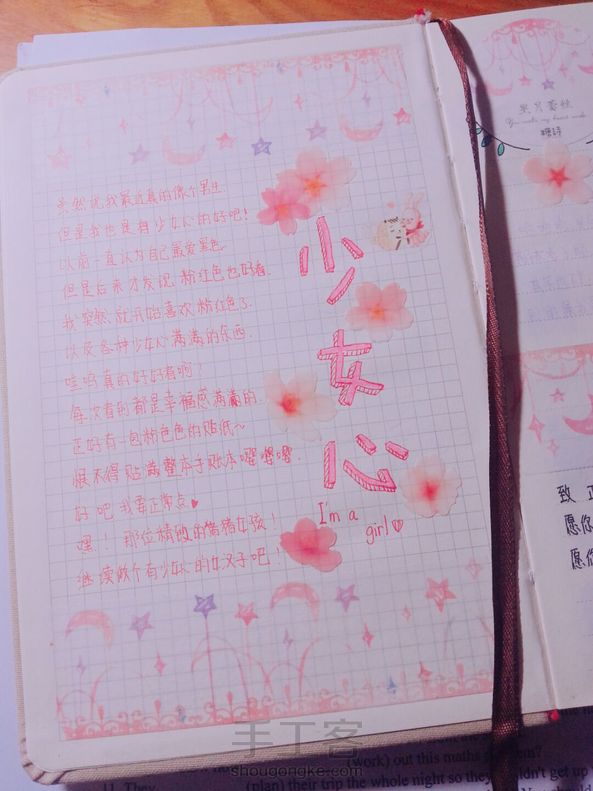 虽然说我最近真的像个男生.
但是我也是有少女心的好吧!
以前一直认为自己最爱黑色.
但是后来才发现,粉红色也好看.
我突然就开始喜欢粉红色了.
以及各种少女心满满的东西.
哇呜真的好好看啊!
每次看到都是幸福感满满的.
正好有一包粉色色的贴纸~
恨不得贴满整本手账本嘤嘤嘤.
好吧我要正常点♥
嘿!那位精致的猪猪女孩!
继续做个有少女心的女汉子吧!
少女心
I'm a
girl♥
You make my heart smile
致
愿你
愿你
手工客
shougongke.com
(work) out this maths
11. They
(plan) their trip the whole night so they
n't get up